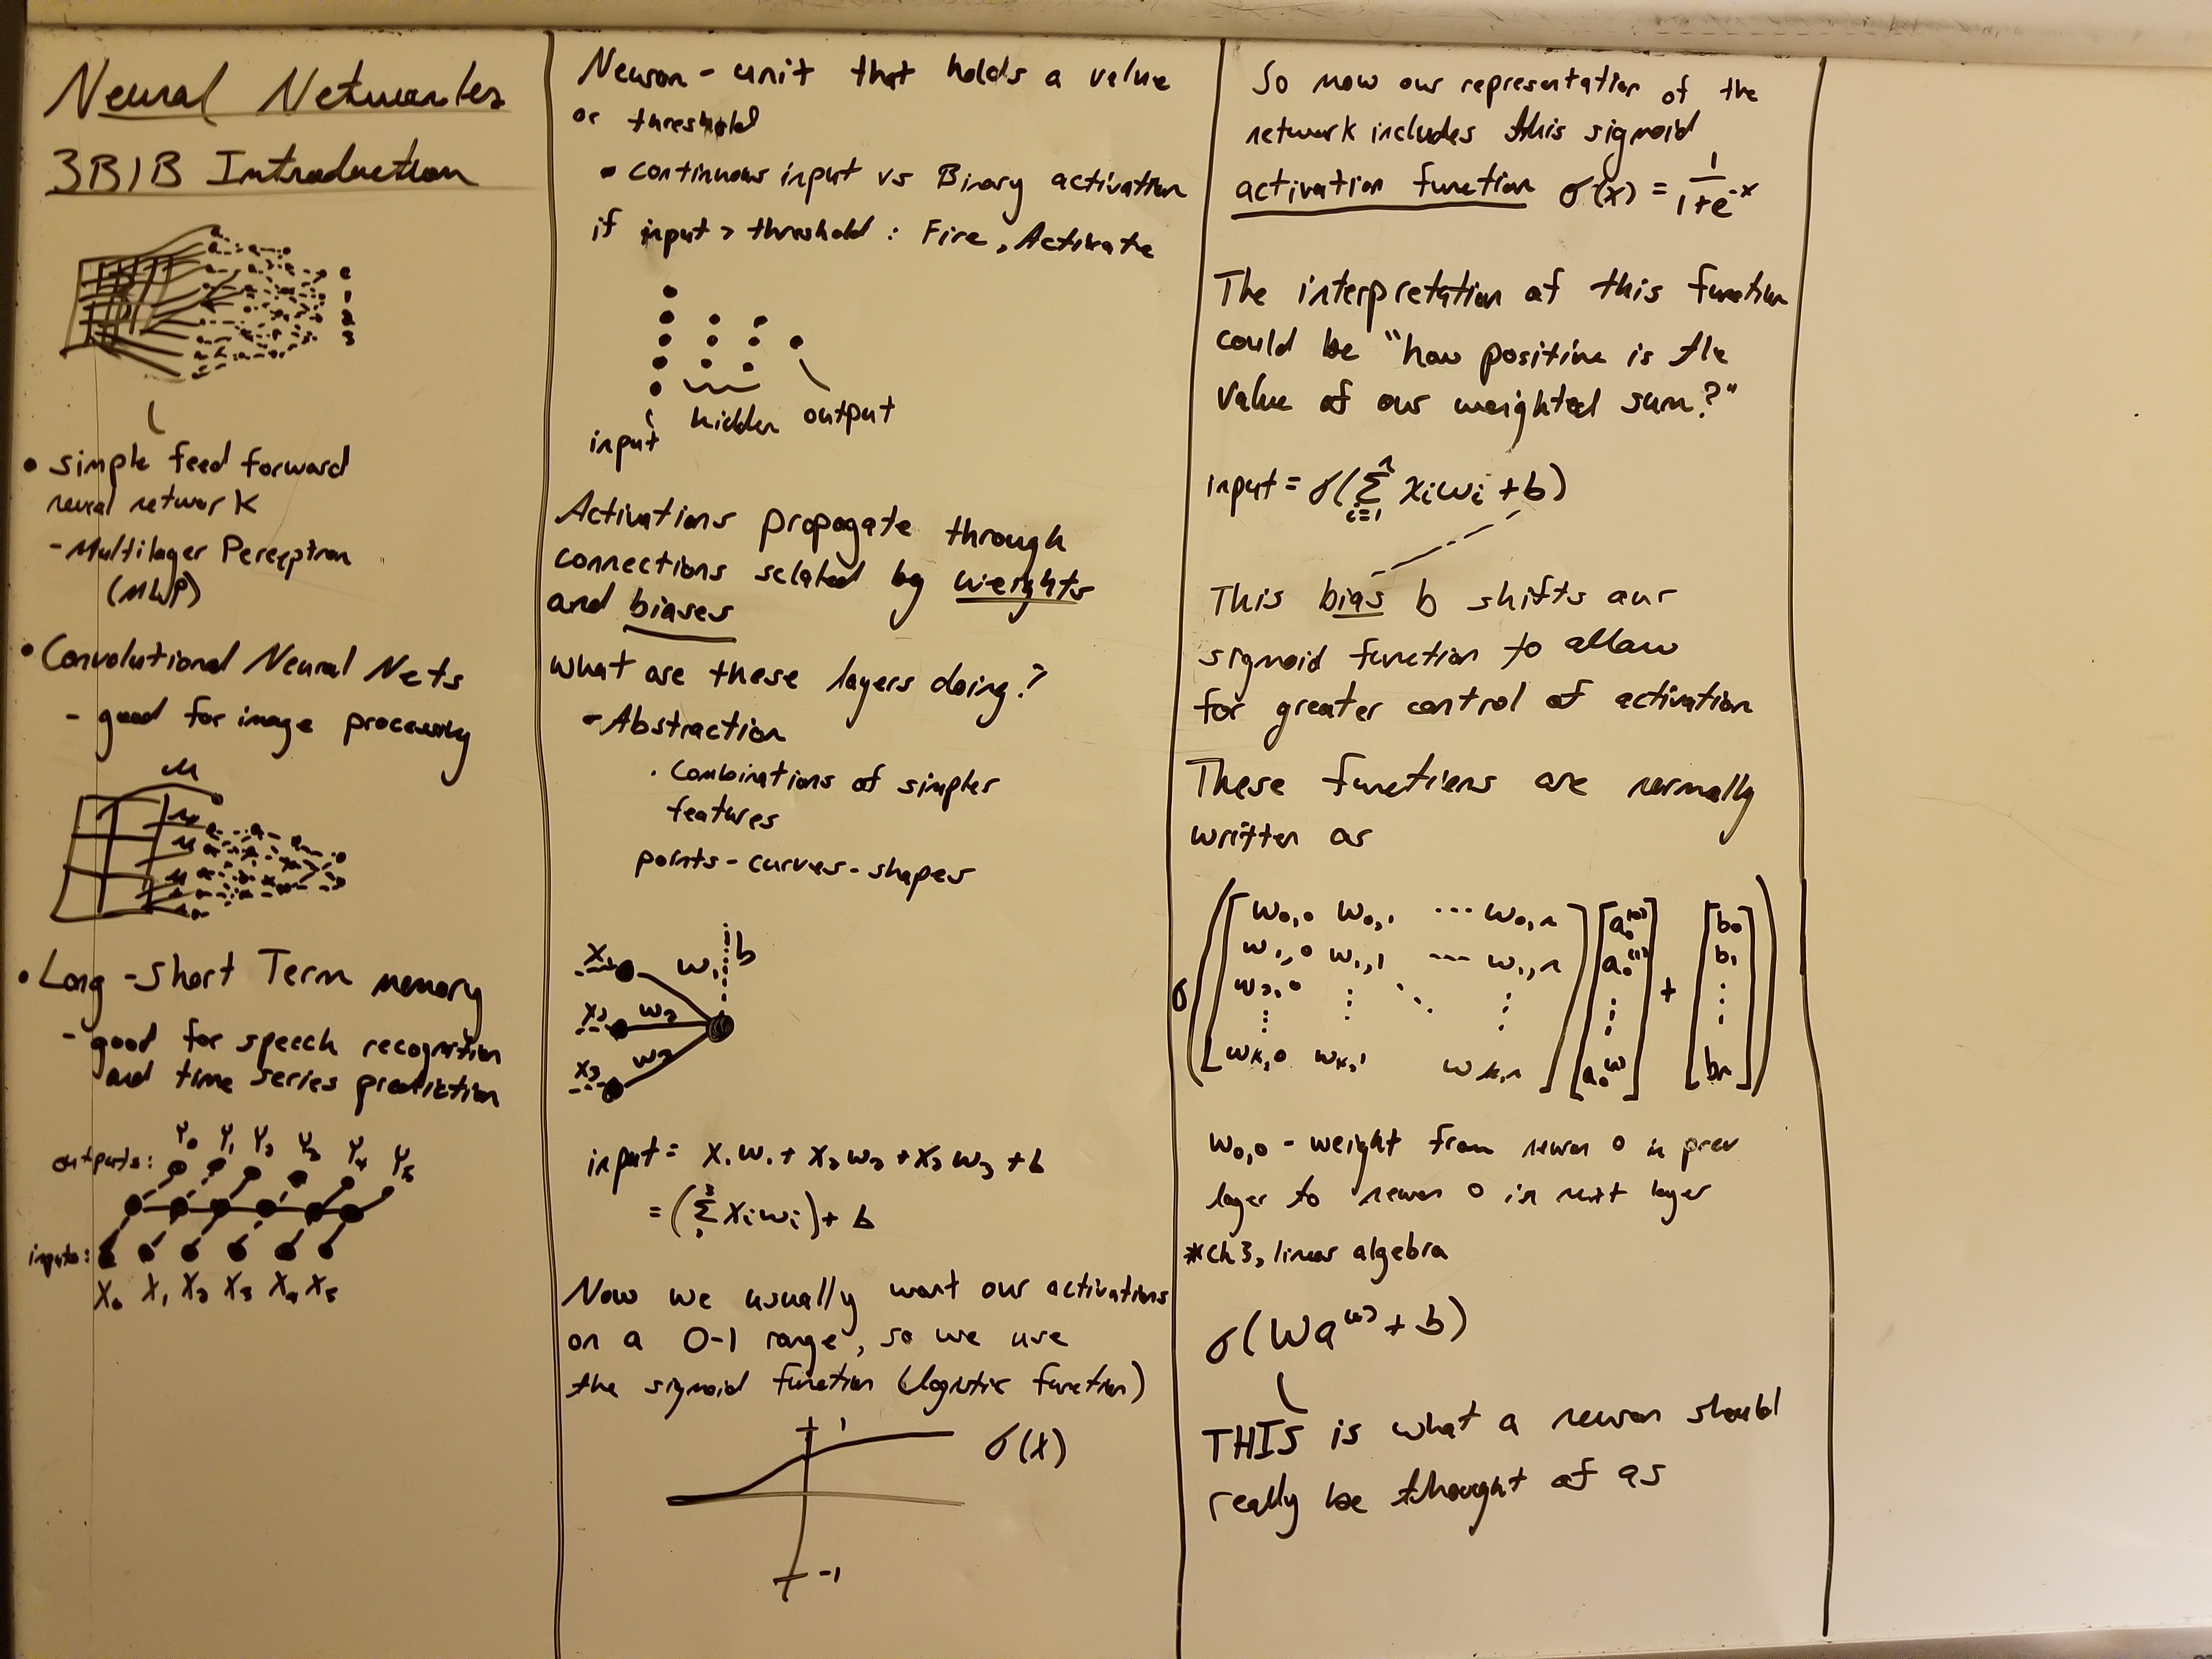 Neural Networks
3B1B Introduction
0
1
2
3
• simple feed forward
neural network
- Multilayer Perceptron
(MLP)
• Convolutional Neural Nets
- good for image processing
• Long-Short Term memory
- good for speech recognition
and time series prediction
outputs: Y0 Y1 Y2 Y3 Y4 Y5
inputs:
X0 X1 X2 X3 X4 X5
Neuron - unit that holds a value
or threshold
• continuous input vs Binary activation
if input > threshold : Fire, Activate
input hidden output
Activations propagate through
connections related by weights
and biases
what are these layers doing?
- Abstraction
· Combinations of simpler
features
points - curves - shapes
X1 w1 b
X2 w2
X3 w3
input = X1w1 + X2w2 + X3w3 + b
= (Σ³₁ Xiwi) + b
Now we usually want our activations
on a 0-1 range, so we use
the sigmoid function (logistic function)
1
σ(x)
-1
So now our representation of the
network includes this sigmoid
activation function σ(x) = 1/(1+e^-x)
The interpretation of this function
could be "how positive is the
value of our weighted sum?"
input = σ(Σⁿᵢ₌₁ xiwi + b)
This bias b shifts our
sigmoid function to allow
for greater control of activation
These functions are normally
written as
σ ( [ w0,0 w0,1 ... w0,n ] [ a0(0) ] [ b0 ] )
w1,0 w1,1 ... w1,n a0(1) b1
w2,0 ⋮ ⋱ ⋮ ⋮ + ⋮
⋮
wk,0 wk,1 wk,n a0(n) bn
w0,0 - weight from neuron 0 in prev
layer to neuron 0 in next layer
*ch 3, linear algebra
σ(Wa + b)
THIS is what a neuron should
really be thought of as